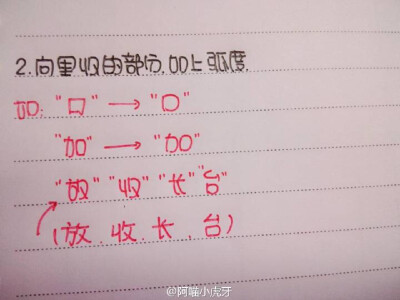 2.向里收的部分,加上弧度.
如:"口"→"口"
"加"→"加"
"放""收""长""台"
(放、收、长、台)
@阿喵小虎牙